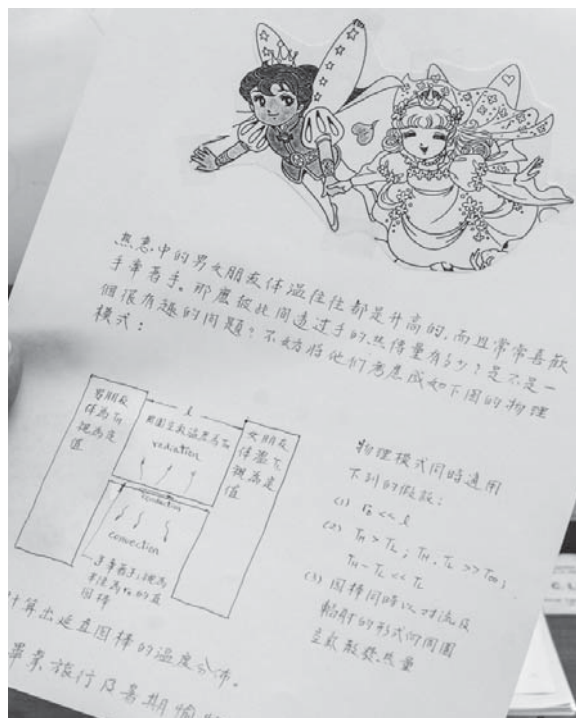 熱戀中的男女朋友体溫往往都是升高的,而且常常喜歡
手牽着手。那麼彼此間透过手的热傳量有多少?是不是一
個很有趣的问題?不妨將他们考慮成如下图的物理
模式:
男朋友
体温TH
視為定
值
l
周围空氣溫度為T∞
radiation
conduction
convection
手牽着手,視為
半径為r0的直
圆棒
女朋友
体溫TL
視為定
值
物理模式同時適用
下列的假設:
(1) r0 << l
(2) TH > TL ; TH, TL >> T∞;
TH - TL << TL
(3) 圆棒同時以对流及
輻射的形式向周圍
空氣散發热量
計算出這直圆棒的溫度分佈。
畢業旅行及暑期愉